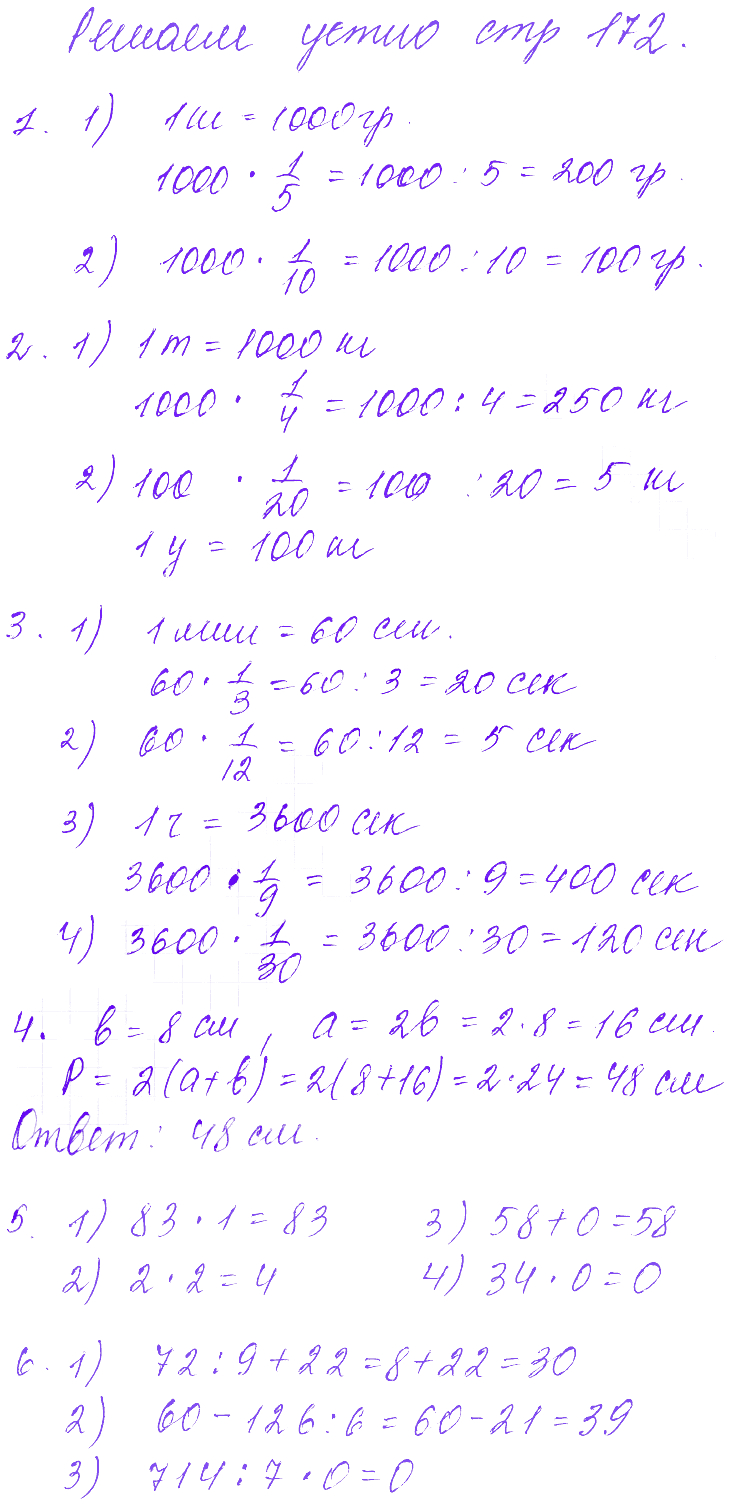 Решаем устно стр 172.
1. 1) 1кг = 1000гр.
1000 · 1/5 = 1000 : 5 = 200 гр.
2) 1000 · 1/10 = 1000 : 10 = 100 гр.
2. 1) 1т = 1000 кг
1000 · 1/4 = 1000 : 4 = 250 кг
2) 100 · 1/20 = 100 : 20 = 5 кг
1 ц = 100 кг
3. 1) 1 мин = 60 сек.
60 · 1/3 = 60 : 3 = 20 сек
2) 60 · 1/12 = 60 : 12 = 5 сек
3) 1 ч = 3600 сек
3600 · 1/9 = 3600 : 9 = 400 сек
4) 3600 · 1/30 = 3600 : 30 = 120 сек
4. в = 8 см, а = 2в = 2 · 8 = 16 см.
Р = 2(а+в) = 2(8+16) = 2 · 24 = 48 см
Ответ: 48 см.
5. 1) 83 · 1 = 83 3) 58 + 0 = 58
2) 2 · 2 = 4 4) 34 · 0 = 0
6. 1) 72 : 9 + 22 = 8 + 22 = 30
2) 60 - 126 : 6 = 60 - 21 = 39
3) 714 : 7 · 0 = 0